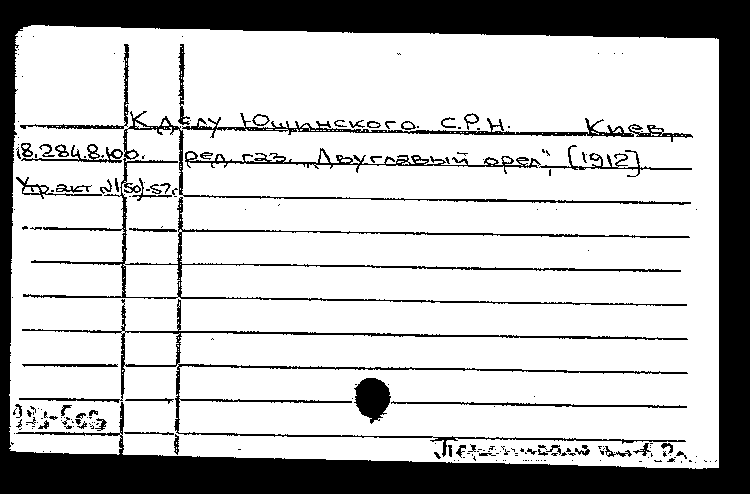 К делу Ющинского. С.Р.Н. Киев,
18.284.8.100. ред. газ. „Двуглавый орел“, [1912].
Утр. акт №1(50)-57г.